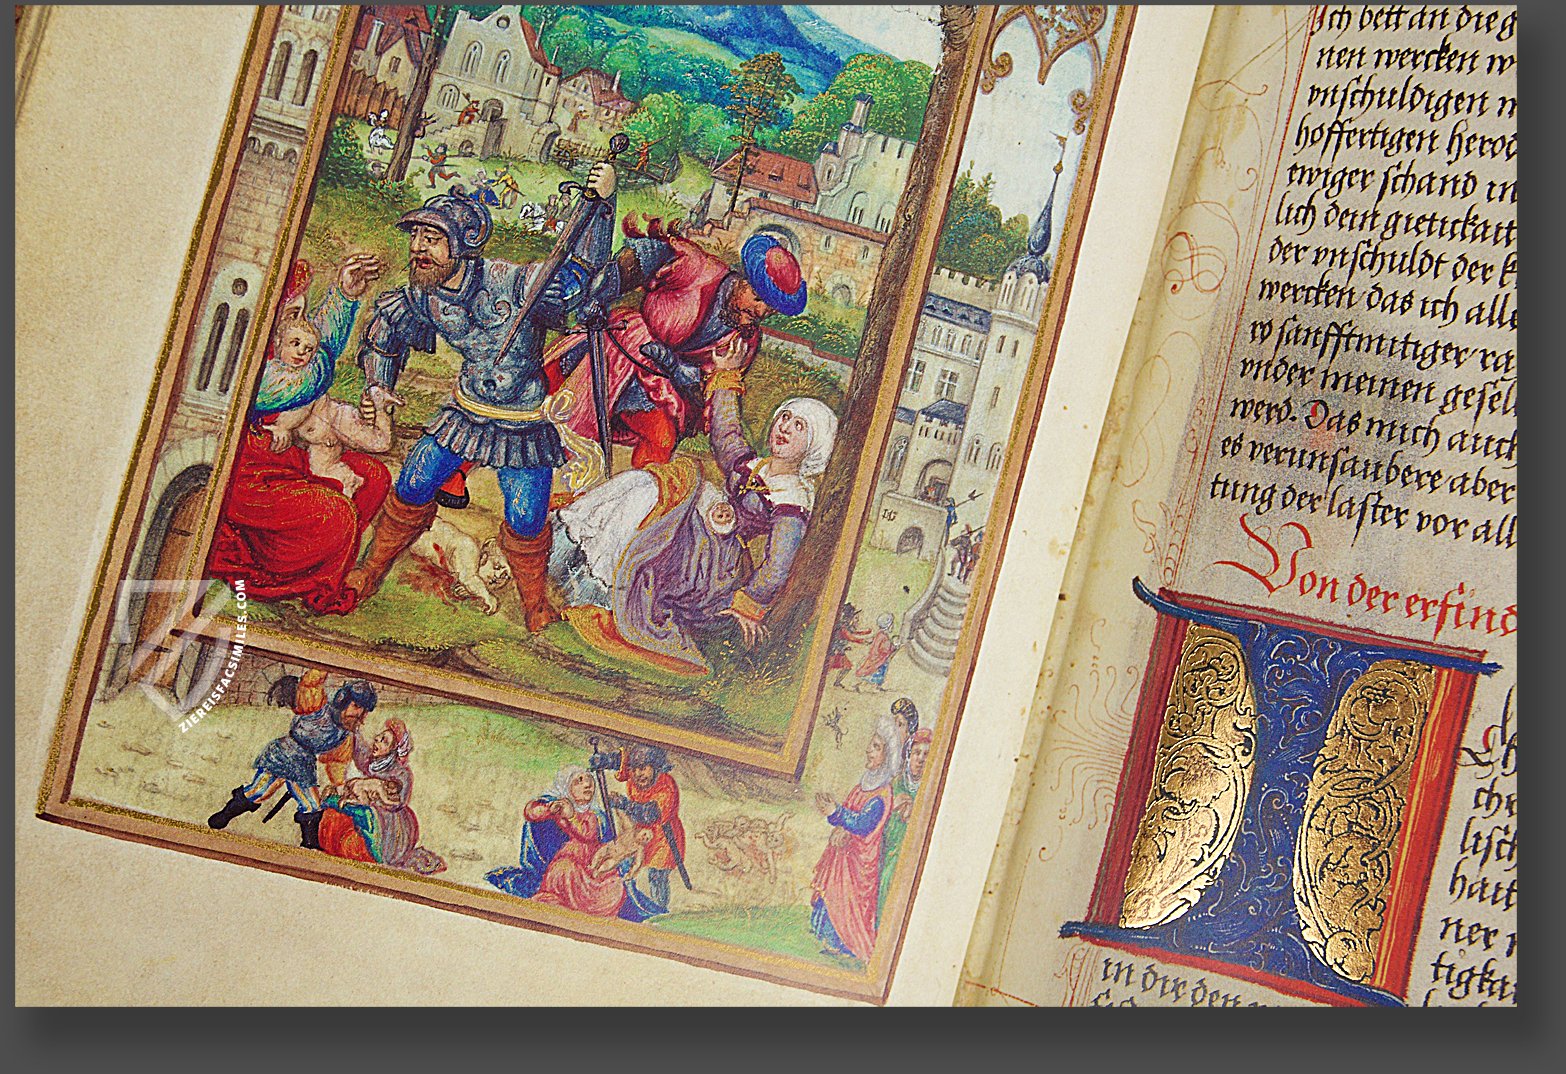 ich bett an die g
nen wercken w
vnschuldigen
hoffertigen herod
ewiger schand in
lich dem gietickait
der vnschuldt der k
wercken das ich alle
so sanfftmitiger
vnder meinen gesell
werd. Das mich auch
es verunsaubere aber
tung der laster vor all
Von der erfind
ch
chr
lisch
hait
ner
tigkai
in dir den
ZIEREISFACSIMILES.COM